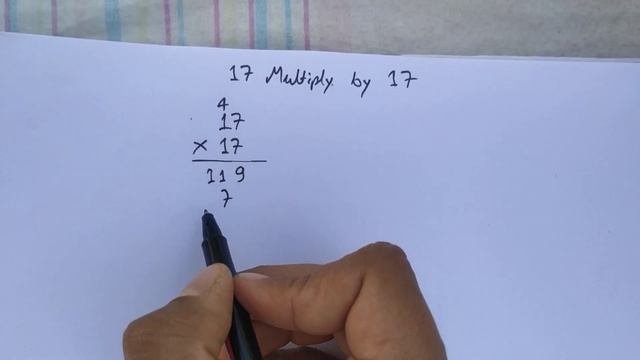 17 Multiply by 17
4
17
× 17
119
7